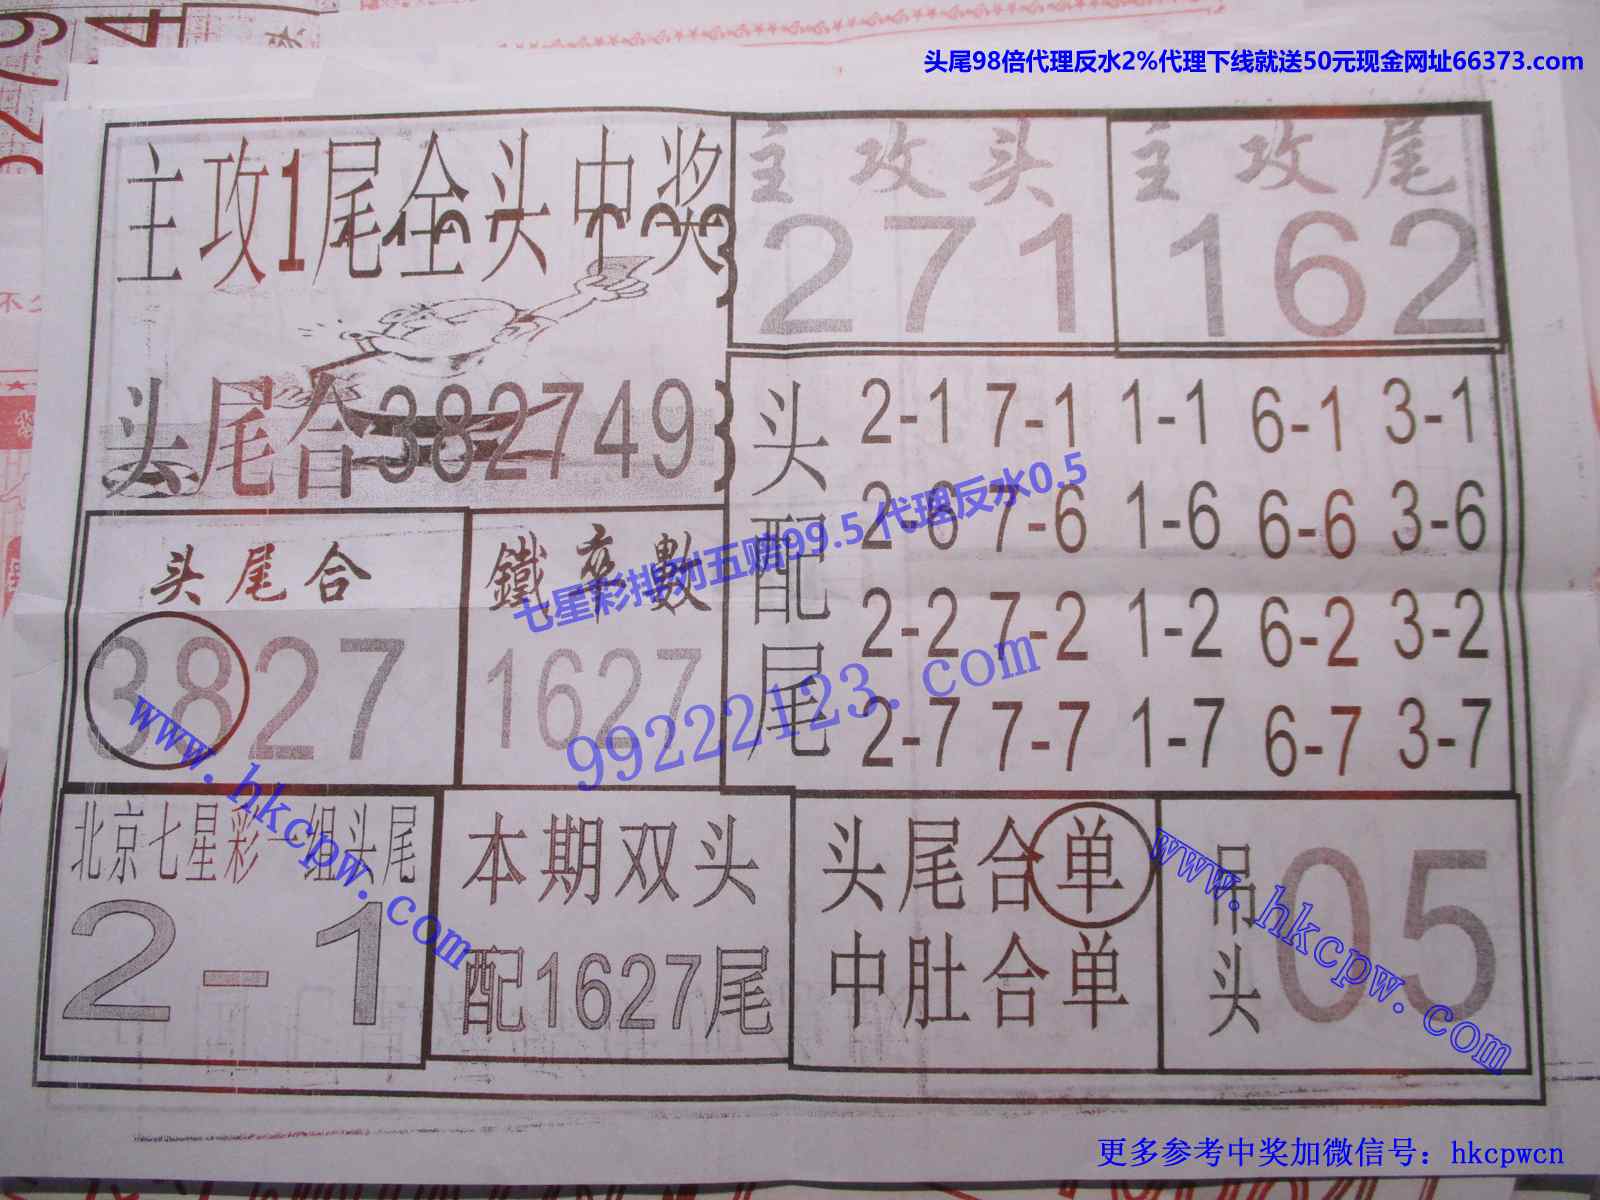 头尾98倍代理反水2%代理下线就送50元现金网址66373.com
主攻1尾全头中奖
主攻头
271
主攻尾
162
头尾合382749
头配尾
2-1 7-1 1-1 6-1 3-1
2-6 7-6 1-6 6-6 3-6
2-2 7-2 1-2 6-2 3-2
2-7 7-7 1-7 6-7 3-7
七星彩排列五赔99.5代理反水0.5
头尾合
3827
鐵卒數
1627
99222123.com
www.hkcpw.com
北京七星彩一组头尾
2-1
本期双头
配1627尾
头尾合单
中肚合单
吊头
05
www.hkcpw.com
更多参考中奖加微信号：hkcpwcn